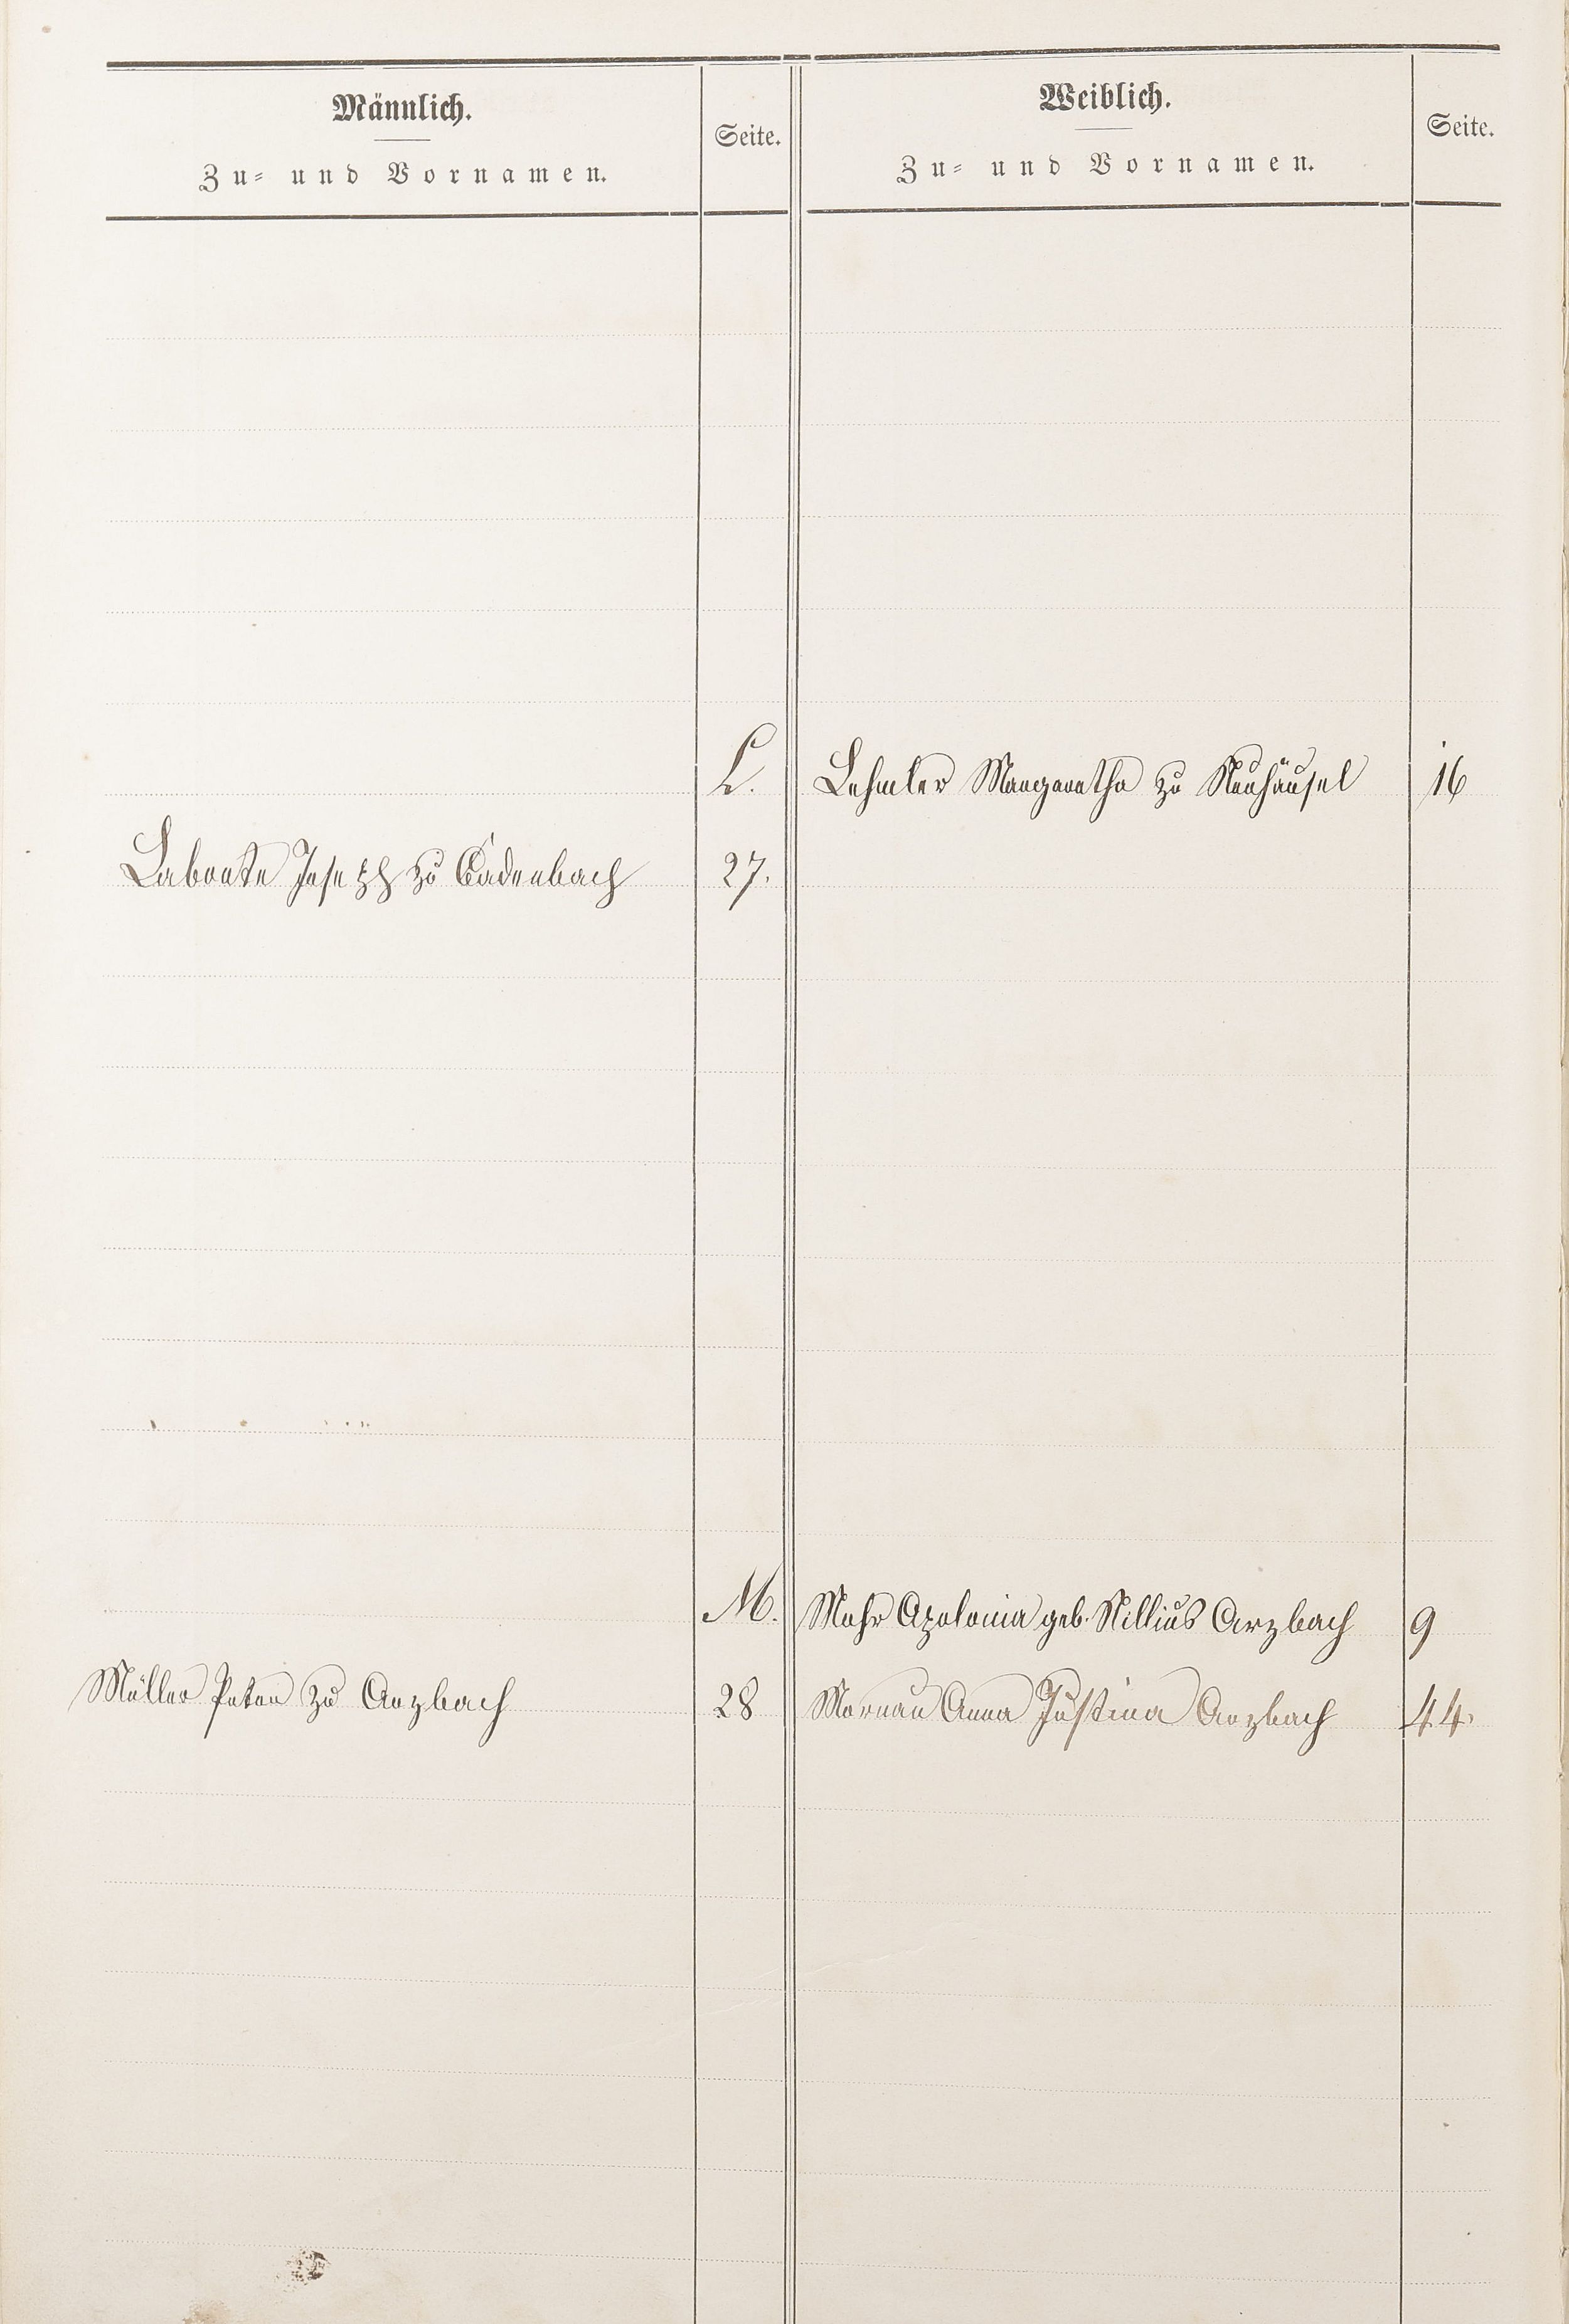 Männlich.
Zu- und Vornamen.
Seite.
Weiblich.
Zu- und Vornamen.
Seite.
L.
Lehmler Margaretha zu Neuhäusel 16
Labonte Joseph zu Cadenbach 27.
M.
Mohr Apolonia geb. Nillius Arzbach 9
Müller Peter zu Arzbach 28
Mornau Anna Justina Arzbach 44.